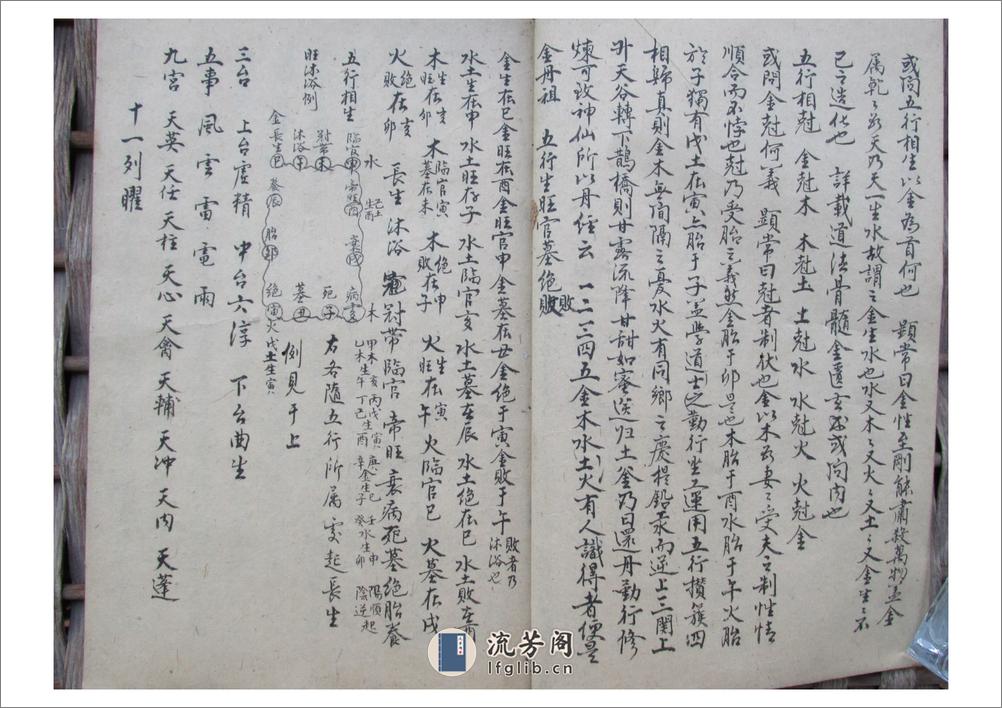 或問五行相生以金為首何也　顯常曰金性至剛能肅殺萬物盖金
属乾乾為天乃天一生水故謂之金生水也水又木木又火火又土土又金生生不
已之造化也　詳載道法骨髓金遺玄秘或问内也
五行相尅　金尅木　木尅土　土尅水　水尅火　火尅金
或問金尅何義　顯常曰尅者制伏也金以木為妻妻受夫之制性情
順合而不悖也尅乃受胎之義然金胎于卯是也木胎于酉水胎于午火胎
於子獨有戊土在寅亦胎于子盖學道士之勤行坐工運用五行攅簇四
相歸真則金木無间隔之憂水火有同鄉之慶提鉛汞而逆上三関上
升天谷轉下鵲橋則甘露流降甘甜如蜜送归土釜乃曰還丹勤行修
煉可致神仙所以丹經云　一二三四五金木水土火有人識得者便是
金丹祖　五行生旺官墓絶敗
金生在巳金旺在酉金旺官申金墓在丑金绝于寅金敗于午　敗者乃沐浴也
水土生在申　水土旺存子　水土臨官亥　水土墓在辰　水土绝在巳　水土敗在酉
木生在亥　木旺在卯　木臨官寅　木墓在未　木绝在申　木敗在子　火生在寅　火旺在午　火臨官巳　火墓在戌
火绝在亥　火敗在卯　長生　沐浴　冠帶　臨官　帝旺　衰病死墓绝胎養
五行相生
旺沐浴例
水　木
臨官申　帝旺酉　衰戌　病亥
冠帶未　沐浴午　金長生巳　養辰　胎卯　绝寅　墓丑　死子
火戊土生寅
己土生酉
甲木亥　丙戊寅　庚巳　壬水生申　陽順起
乙木生午　丁己生酉　辛金生子　癸水生卯　陰逆起
右各隨五行所属處起長生
例見于上
三台　上台虚精　中台六淳　下台曲生
五事　風　雲　雷　電　雨
九宫　天英　天任　天柱　天心　天禽　天輔　天冲　天内　天蓬
十一列曜
流芳阁
lfglib.cn